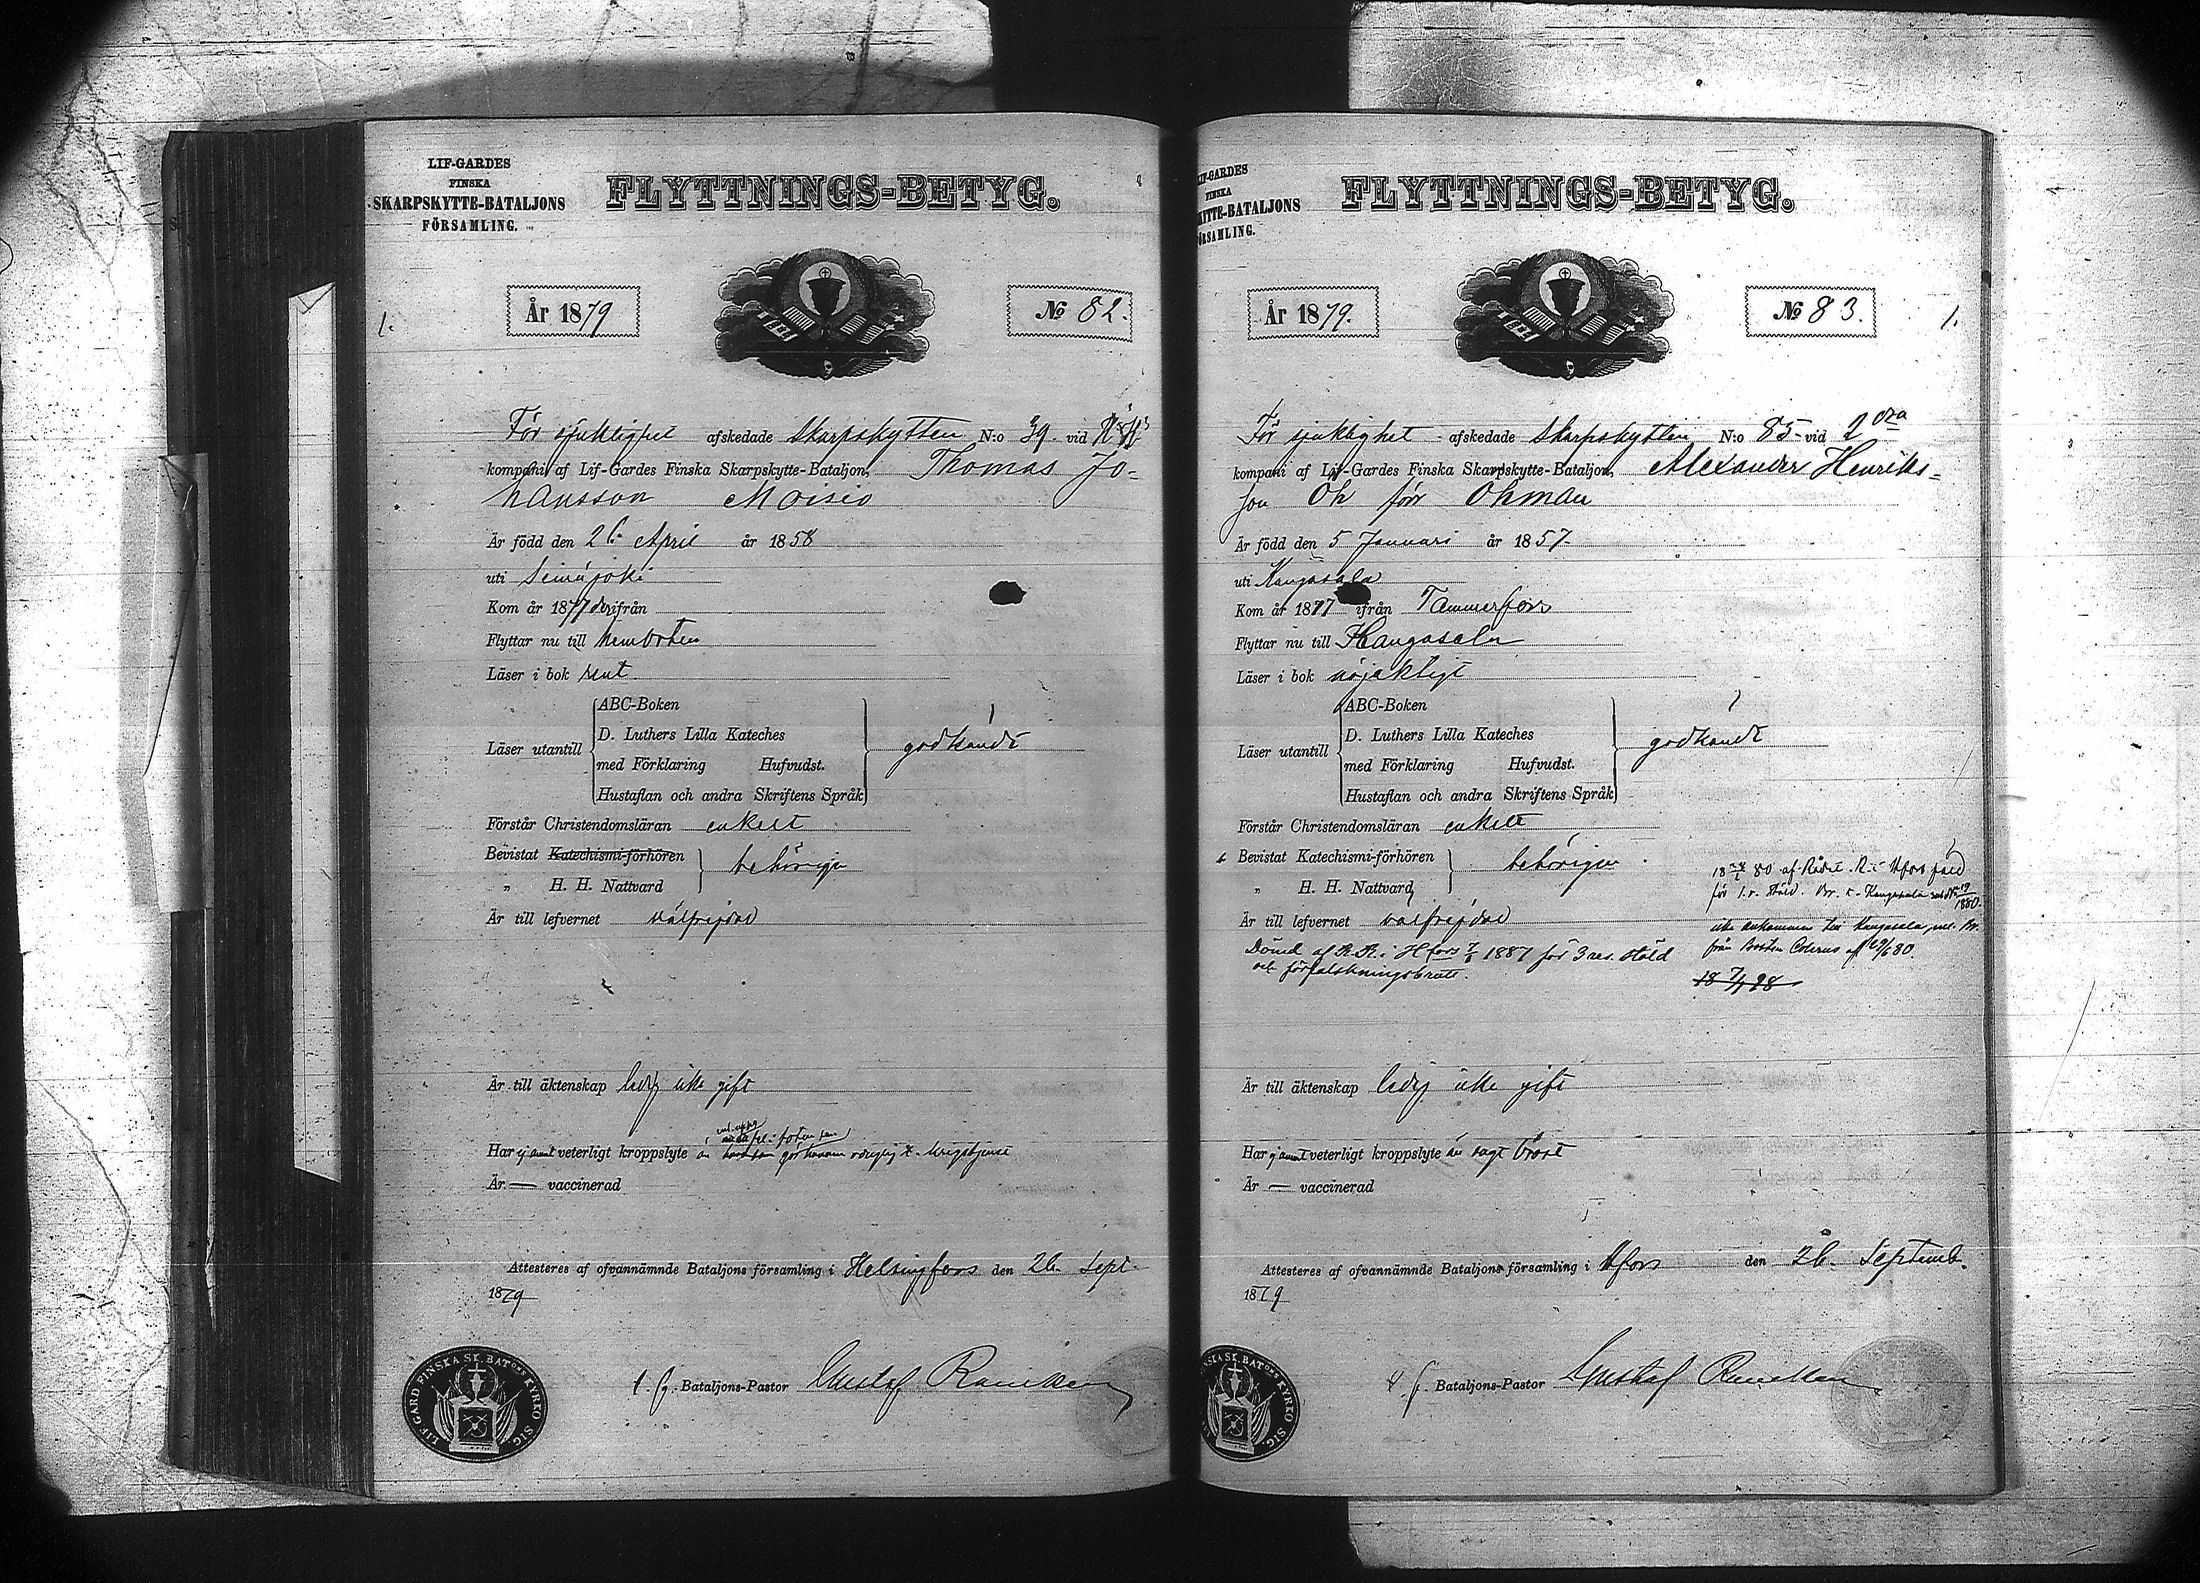 LIF-GARDES
FINSKA
SKARPSKYTTE-BATALJONS
FÖRSAMLING.
FLYTTNINGS-BETYG.
1.
År 1879
No 82.
För sjuklighet afskedade Skarpskytten N:o 39. vid
kompani af Lif-Gardes Finska Skarpskytte-Bataljon, Thomas Jo-
hansson Moisio
Är född den 26 April år 1858
uti Seinäjoki
Kom år 1877 derifrån
Flyttar nu till hemorten
Läser i bok rent
ABC-Boken
D. Luthers Lilla Kateches
Läser utantill
med Förklaring Hufvudst.
Hustaflan och andra Skriftens Språk
godkändt
Förstår Christendomsläran enkelt
Bevistat Katechismi-förhören
" H. H. Nattvard
behörigen
Är till lefvernet välfrejdad
Är till äktenskap ledig icke gift
Har ej annat veterligt kroppslyte än
Är — vaccinerad
Attesteres af ofvannämnde Bataljons församling i Helsingfors den 26. Sept.
1879
t. f. Bataljons-Pastor Gustaf
LIF.GARD.FINSKA SK.BATONS KYRKO SIG.
LIF-GARDES
FINSKA
SKYTTE-BATALJONS
FÖRSAMLING.
FLYTTNINGS-BETYG.
År 1879.
No 83.
1.
För sjuklighet afskedade Skarpskytten N:o 85 vid 2dra
kompani af Lif-Gardes Finska Skarpskytte-Bataljon, Alexander Henriks-
son Oh förr Ohman
Är född den 5 Januari år 1857.
uti Kangasala
Kom år 1877 ifrån Tammerfors
Flyttar nu till Kangasala
Läser i bok nöjaktigt
ABC-Boken
D. Luthers Lilla Kateches
Läser utantill
med Förklaring Hufvudst.
Hustaflan och andra Skriftens Språk
godkändt
Förstår Christendomsläran enkelt
Bevistat Katechismi-förhören
" H. H. Nattvard
behörigen
Är till lefvernet välfrejdad
Dömd af R.R. i Hfors 7/6 1887 för 3 res. stöld
och förfalskningsbrott.
för 1. r. stöld. Br. t. Kangasala
1880.
icke ankommen till Kangasala, enl. Br.
från Pastor
Är till äktenskap ledig icke gift
Har ej annat veterligt kroppslyte än svagt bröst
Är — vaccinerad
Attesteres af ofvannämnde Bataljons församling i Hfors den 26. Septemb.
1879
t. f. Bataljons-Pastor Gustaf
FINSKA SK.BATONS KYRKO SIG.